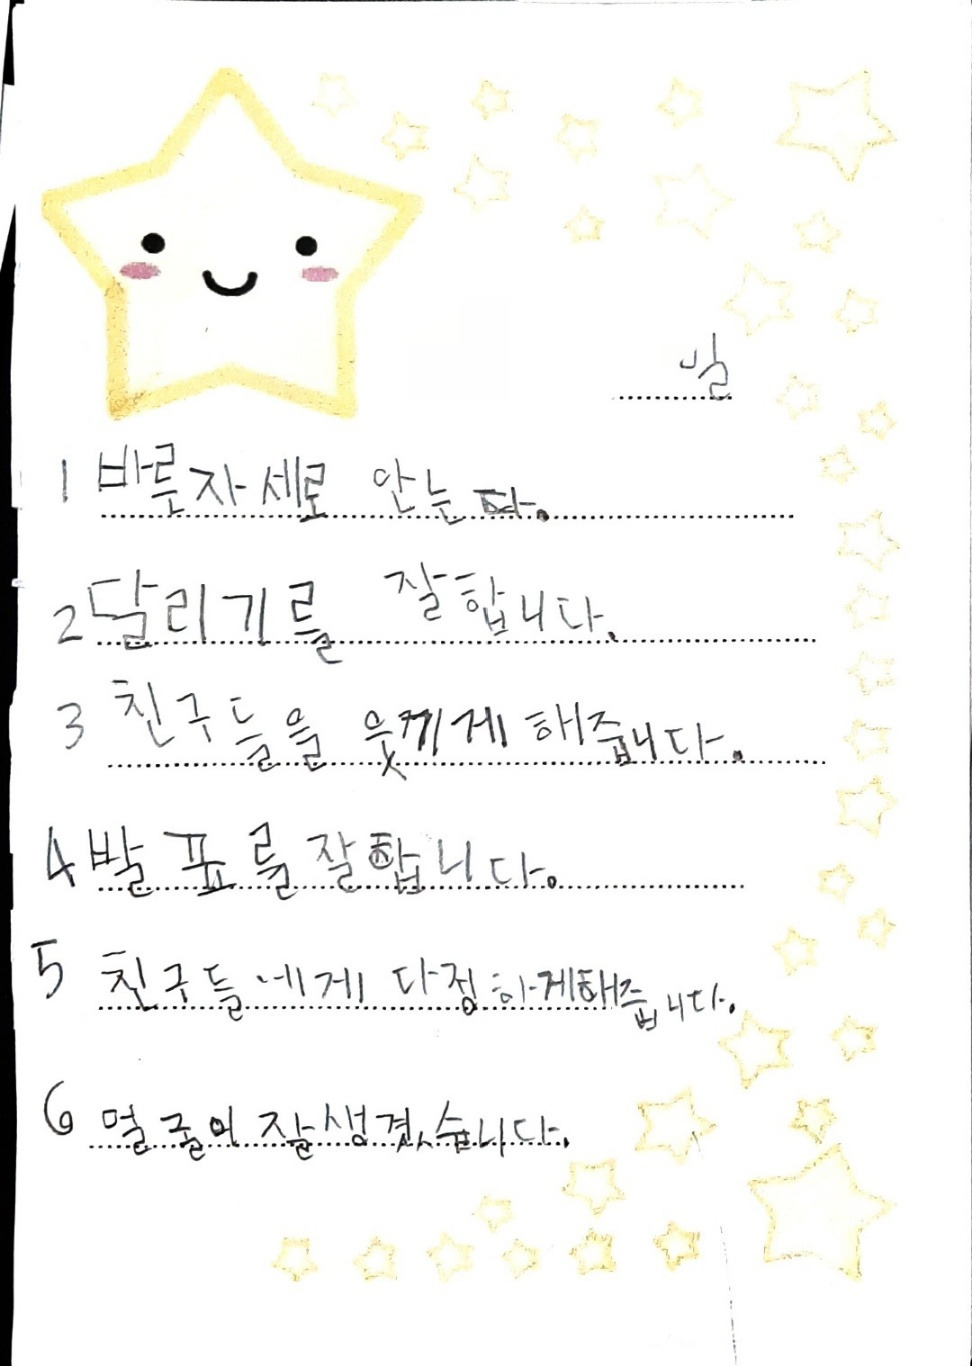 빌
1 바른자세로 안는다.
2 달리기를 잘합니다.
3 친구들을 웃끼게 해줍니다.
4 발표를 잘합니다.
5 친구들에게 다정하게해줍니다.
6 멀굴이 잘생겼습니다.